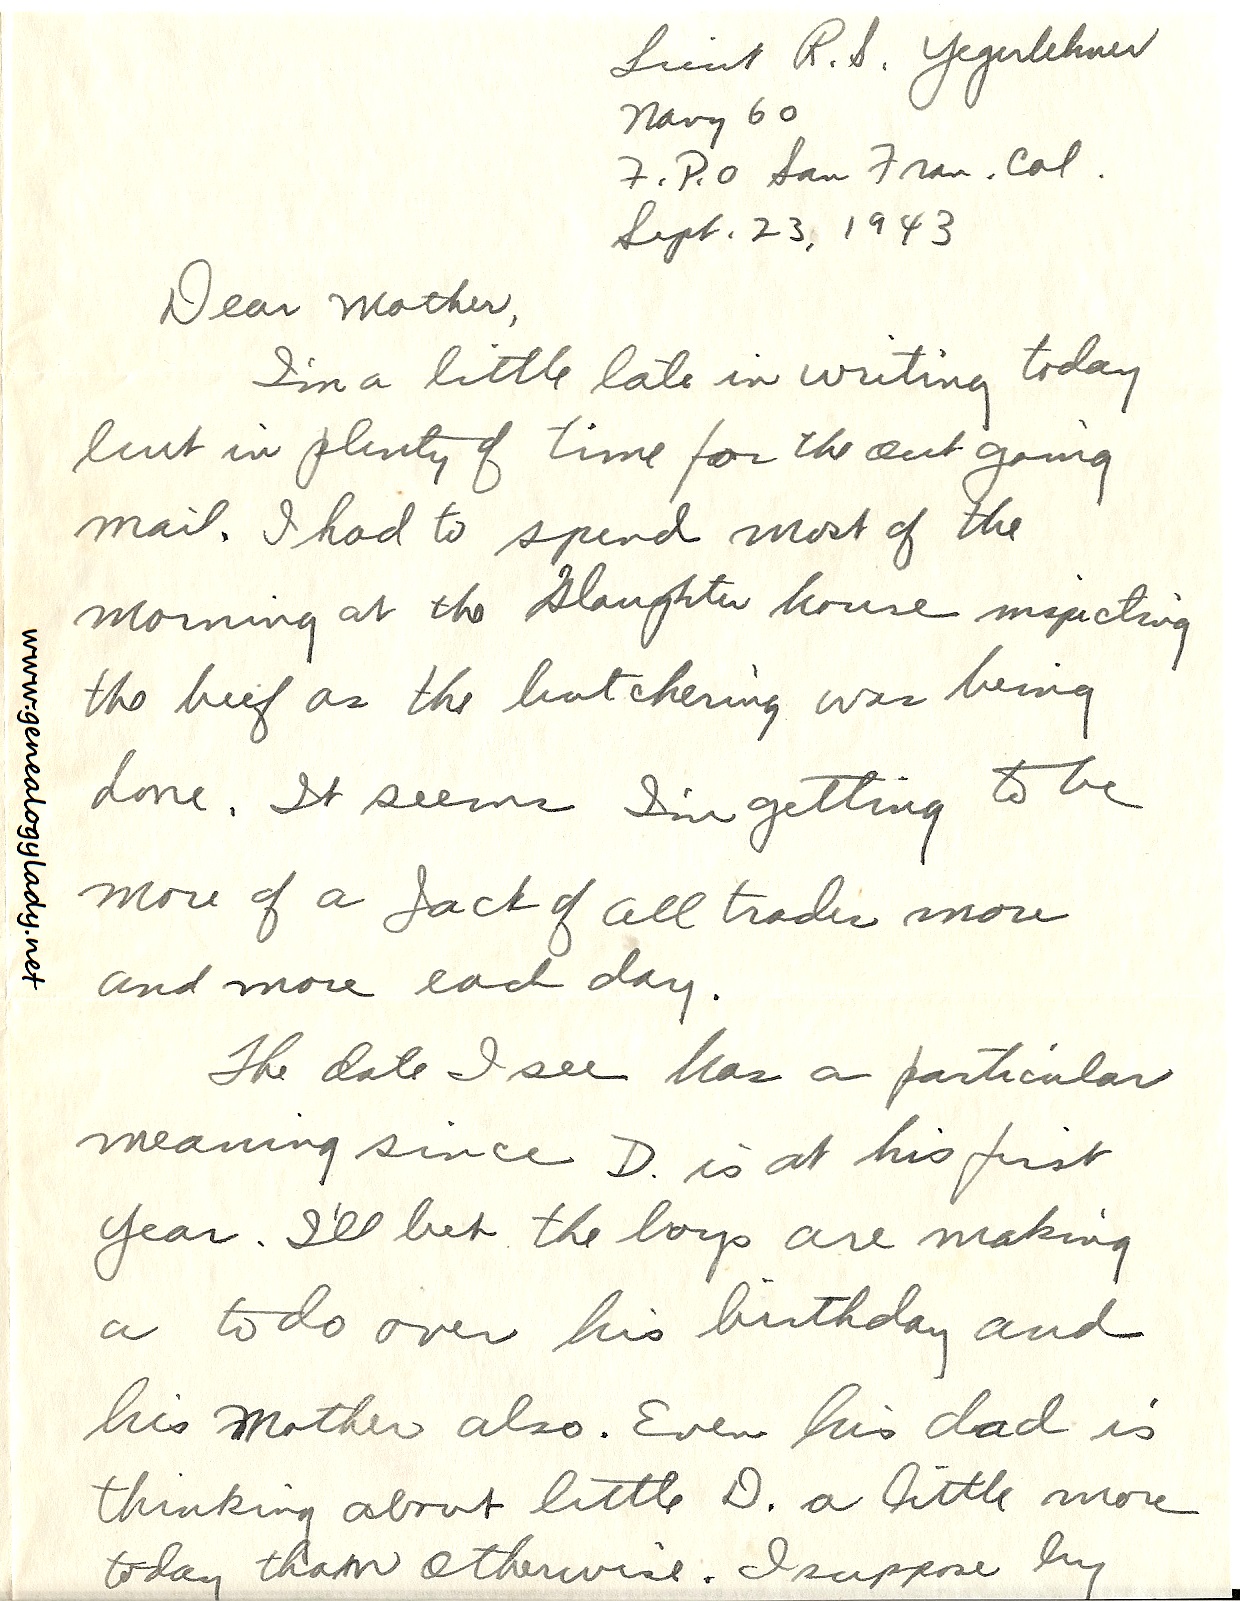 Lieut R.S. Yegerlehner
Navy 60
F.P.O San Fran. Cal.
Sept. 23, 1943
Dear Mother,
I'm a little late in writing today
but in plenty of time for the out going
mail. I had to spend most of the
morning at the Slaughter house inspecting
the beef as the butchering was being
done. It seems I'm getting to be
more of a Jack of all trades more
and more each day.
The date I see has a particular
meaning since D. is at his first
year. I'll bet the boys are making
a to do over his birthday and
his Mother also. Even his dad is
thinking about little D. a little more
today than otherwise. I suppose by
www.genealogylady.net